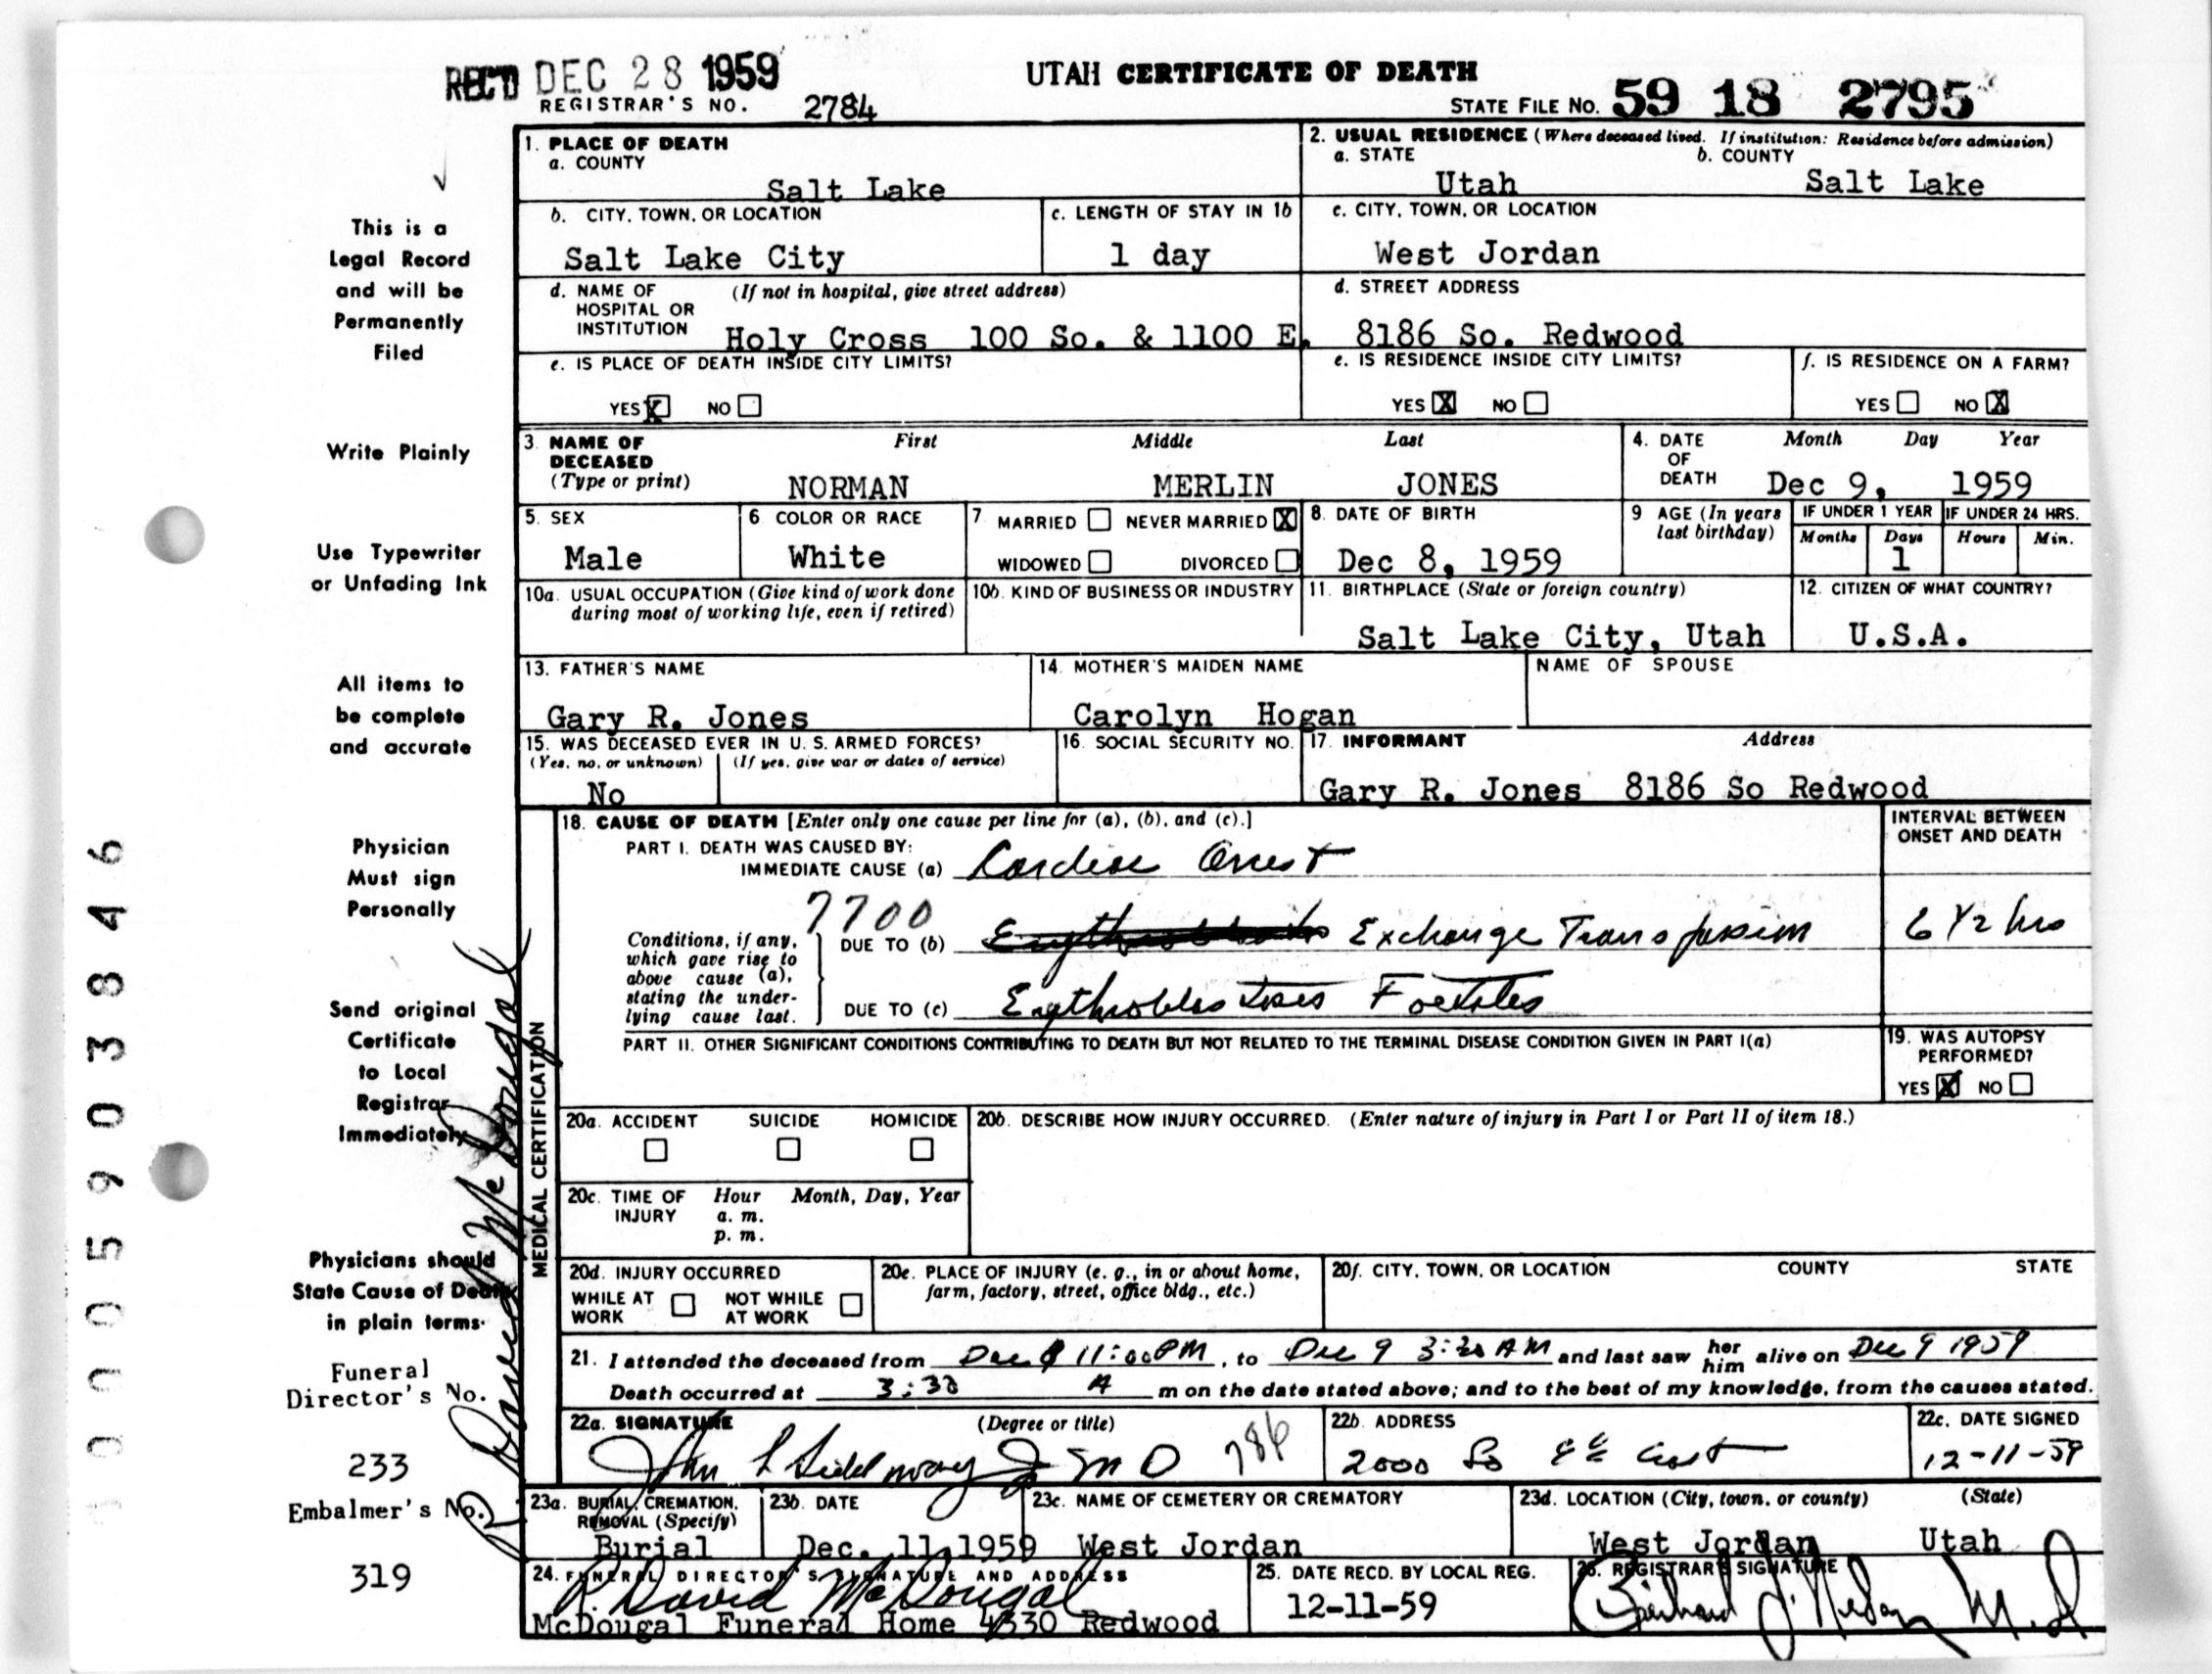 REC'D DEC 28 1959
UTAH CERTIFICATE OF DEATH
REGISTRAR'S NO. 2784
STATE FILE NO. 59 18 2795
1. PLACE OF DEATH
a. COUNTY
Salt Lake
2. USUAL RESIDENCE (Where deceased lived. If institution: Residence before admission)
a. STATE b. COUNTY
Utah Salt Lake
This is a
Legal Record
and will be
Permanently
Filed
b. CITY, TOWN, OR LOCATION
Salt Lake City
c. LENGTH OF STAY IN 1b
1 day
c. CITY, TOWN, OR LOCATION
West Jordan
d. NAME OF (If not in hospital, give street address)
HOSPITAL OR
INSTITUTION Holy Cross 100 So. & 1100 E.
d. STREET ADDRESS
8186 So. Redwood
e. IS PLACE OF DEATH INSIDE CITY LIMITS?
YES X NO
e. IS RESIDENCE INSIDE CITY LIMITS?
YES X NO
f. IS RESIDENCE ON A FARM?
YES NO X
Write Plainly
3. NAME OF DECEASED First Middle Last
(Type or print) NORMAN MERLIN JONES
4. DATE OF DEATH Month Day Year
Dec 9, 1959
Use Typewriter
or Unfading Ink
5. SEX
Male
6. COLOR OR RACE
White
7. MARRIED NEVER MARRIED X
WIDOWED DIVORCED
8. DATE OF BIRTH
Dec 8, 1959
9. AGE (In years
last birthday)
IF UNDER 1 YEAR IF UNDER 24 HRS.
Months Days Hours Min.
1
10a. USUAL OCCUPATION (Give kind of work done
during most of working life, even if retired)
10b. KIND OF BUSINESS OR INDUSTRY
11. BIRTHPLACE (State or foreign country)
Salt Lake City, Utah
12. CITIZEN OF WHAT COUNTRY?
U.S.A.
All items to
be complete
and accurate
13. FATHER'S NAME
Gary R. Jones
14. MOTHER'S MAIDEN NAME
Carolyn Hogan
NAME OF SPOUSE
15. WAS DECEASED EVER IN U. S. ARMED FORCES?
(Yes, no, or unknown) (If yes, give war or dates of service)
No
16. SOCIAL SECURITY NO.
17. INFORMANT Address
Gary R. Jones 8186 So Redwood
Physician
Must sign
Personally
MEDICAL CERTIFICATION
18. CAUSE OF DEATH [Enter only one cause per line for (a), (b), and (c).]
INTERVAL BETWEEN
ONSET AND DEATH
PART I. DEATH WAS CAUSED BY:
IMMEDIATE CAUSE (a) Cardiac Arrest
7700
Conditions, if any,
which gave rise to
above cause (a),
stating the under-
lying cause last.
DUE TO (b) Exchange Transfusion 6 1/2 hrs
DUE TO (c) Erythroblastosis Foetales
PART II. OTHER SIGNIFICANT CONDITIONS CONTRIBUTING TO DEATH BUT NOT RELATED TO THE TERMINAL DISEASE CONDITION GIVEN IN PART I(a)
19. WAS AUTOPSY
PERFORMED?
YES X NO
Send original
Certificate
to Local
Registrar
Immediately
20a. ACCIDENT SUICIDE HOMICIDE
20b. DESCRIBE HOW INJURY OCCURRED. (Enter nature of injury in Part I or Part II of item 18.)
20c. TIME OF INJURY Hour Month, Day, Year
a. m.
p. m.
Physicians should
State Cause of Death
in plain terms.
20d. INJURY OCCURRED
WHILE AT WORK NOT WHILE AT WORK
20e. PLACE OF INJURY (e. g., in or about home,
farm, factory, street, office bldg., etc.)
20f. CITY, TOWN, OR LOCATION COUNTY STATE
21. I attended the deceased from Dec 8 11:00 PM, to Dec 9 3:30 AM and last saw her him alive on Dec 9 1959
Death occurred at 3:30 A m on the date stated above; and to the best of my knowledge, from the causes stated.
Funeral
Director's No.
233
Embalmer's No.
319
R. David McDougal
22a. SIGNATURE (Degree or title)
John L Siddoway Jr MD 786
22b. ADDRESS
2000 So 9th East
22c. DATE SIGNED
12-11-59
23a. BURIAL, CREMATION,
REMOVAL (Specify)
Burial
23b. DATE
Dec. 11, 1959
23c. NAME OF CEMETERY OR CREMATORY
West Jordan
23d. LOCATION (City, town, or county) (State)
West Jordan Utah
24. FUNERAL DIRECTOR'S SIGNATURE AND ADDRESS
R. David McDougal
McDougal Funeral Home 4330 Redwood
25. DATE RECD. BY LOCAL REG.
12-11-59
26. REGISTRAR'S SIGNATURE
M.D.
0005903846